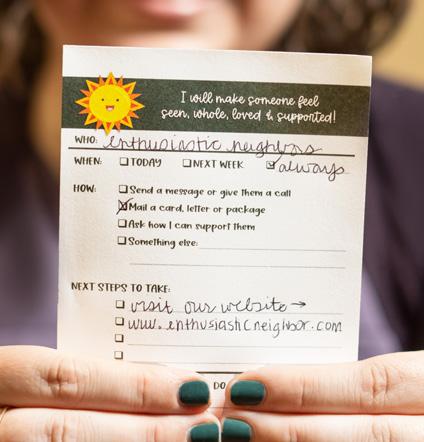 I will make someone feel
seen, whole, loved & supported!
WHO: enthusiastic neighbors
WHEN: TODAY NEXT WEEK always
HOW: Send a message or give them a call
Mail a card, letter or package
Ask how I can support them
Something else:
NEXT STEPS TO TAKE:
visit our website →
www.enthusiasticneighbor.com
DO